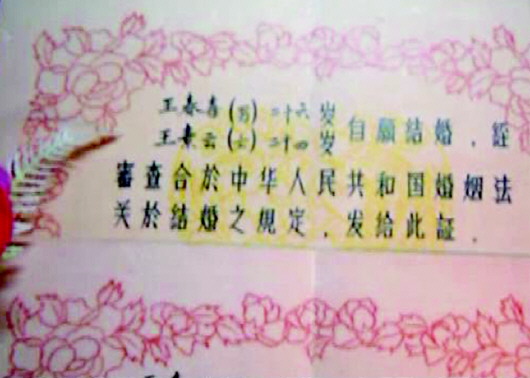 王春喜(男)二十六岁
王素云(女)二十四岁 自願结婚，経
審查合於中华人民共和国婚姻法
关於结婚之規定，发给此証．